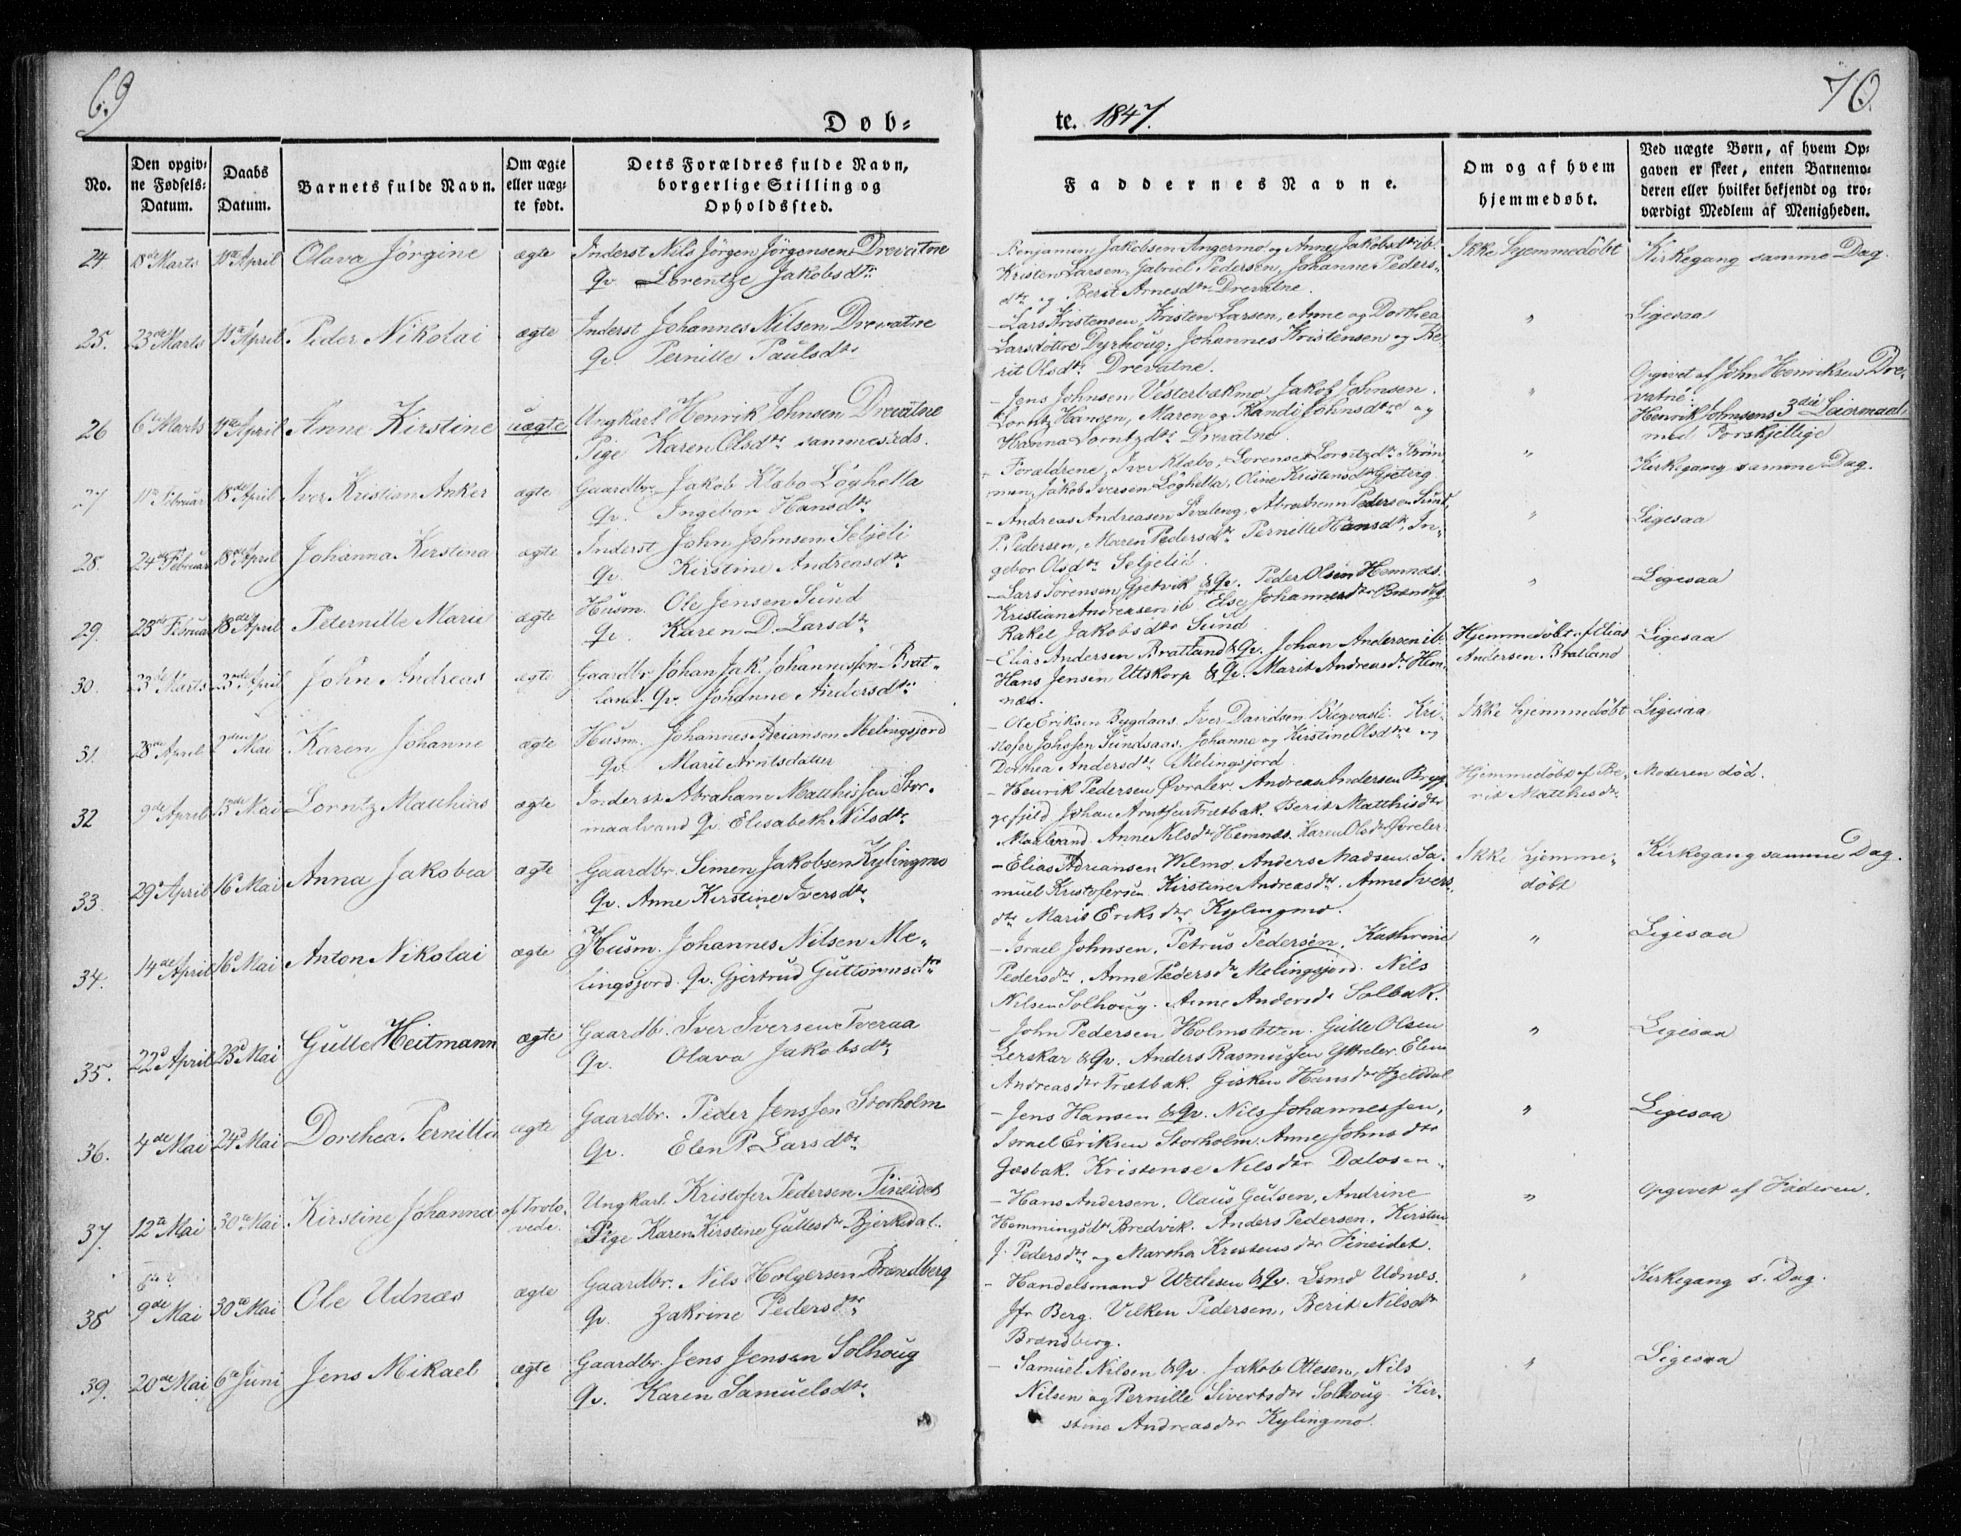 69
70.
Døb-
te. 1847.
No.
Den opgiv-
ne Fødsels-
Datum.
Daabs
Datum.
Barnets fulde Navn.
Om ægte
eller uæg-
te født.
Dets Forældres fulde Navn,
borgerlige Stilling og
Opholdssted.
Faddernes Navne.
Om og af hvem
hjemmedøbt.
Ved uægte Børn, af hvem Op-
gaven er skeet, enten Barnemo-
deren eller hvilket bekjendt og tro-
værdigt Medlem af Menigheden.
24 18de Marts 11te April Olava Jörgine ægte Inderst Nils Jörgen Jörgensen Drevatne
Qv. Lorentze Jakobsdtr
Benjamin Jakobsen Angermo og Anne Jakobsdtr ib.
Kristen Larsen, Gabriel Pedersen, Johanne Peders-
dtr og Berit Arnesdtr Drevatne.
Ikke hjemmedöbt
Kirkegang samme Dag.
25. 23de Marts 11te April Peder Nikolai ægte Inderst Johannes Nilsen Drevatne
Qv. Pernille Paulsdtr
- Lars Kristensen, Kristen Larsen, Anne og Dorthea
Larsdöttre Dyrhoug; Johannes Kristensen og Be-
rit Olsdtr Drevatne.
"
Ligesaa
26 6te Marts 11te April Anne Kirstine uægte Ungkarl Henrik Johnsen Drevatne
Pige Karen Olsdtr sammesteds.
- Jens Johnsen Vesterbækmo, Jakob Johnsen.
Lorntz Hansen, Maren og Randi Johnsdtre og
Hanna Lorntzdtr Drevatne.
"
Opgivet af John Henriksen Dre-
vatne.
Henrik Johnsens 3die Leiermaal
med Forskjellige
27 11te Februar 18de April Iver Kristian Anker ægte Gaardbr. Jakob Klæbo Löghella
Qv. Ingebor Hansdtr
- Forældrene, Iver Klæbo, Lorense Lorntzdtr Ström-
men, Jakob Iversen Löghella, Oline Kristensdtr
"
Kirkegang samme Dag.
28. 24de Februar 18de April Johanna Kirstina ægte Inderst John Johnsen Seljeli
Qv. Kirstine Andreasdtr
- Andreas Andreasen Svaleng, Abraham Pedersen Sund,
P. Pedersen, Maren Pedersdtr Pernille Hansdtr, In-
gebor Olsdtr Seljelid.
"
Ligesaa
29. 23de Februar 18de April Peternille Marie ægte Husm. Ole Jensen Sund
Qv. Karen D. Larsdtr
- Lars Sörensen Gjetvik & Qv. Peder Olsen Hemnæs.
Kristian Andreasen ib. Else Johannesdtr
Rakel Jakobsdtr Sund
"
Ligesaa
30. 23de Marts 23de April John Andreas ægte Gaardbr. Johan Jak. Johannessen Brat-
land. Qv. Johanne Andersdtr
- Elias Andersen Bratland & Qv. Johan Andersen ib.
Hans Jensen Utskorp & Qv. Marit Andreasdtr Hem-
næs.
Hjemmedöbt af Elias
Andersen Bratland
Ligesaa
31. 28de April 2den Mai Karen Johanne ægte Husm. Johannes Adriansen Melingsjord
Qv. Marit Arntsdatter
- Ole Eriksen Bygdaas. Iver Davidsen Kri-
stofer Johssen Sundsaas. Johanne og Kirstine Olsdtre og
Dorthea Andersdtr Melingsjord.
Ikke hjemmedöbt
Ligesaa
32 9de April 13de Mai Lorntz Matthias ægte Inderst Abraham Matthissen Stor-
maalvand Qv. Elisabeth Nilsdtr
- Henrik Pedersen Övreler. Andreas Andersen Bryg-
gefjeld Johan Arntsen Træbak. Berit Matthisdtr
Maalvand. Anne Nilsdtr Hemnæs. Karen Olsdtr Övreler
Hjemmedöbt af Be-
rit Matthisdtr
Moderen död.
33. 29de April 16de Mai Anna Jakobea ægte Gaardbr. Simen Jakobsen Kylingmo
Qv. Anne Kirstine Iversdtr
- Elias Adriansen Wilmo. Anders Madsen. Sa-
muel Kristofersen. Kirstine Andreasdtr. Anne Ivers-
dtr Marit Eriksdtr Kylingmo.
Ikke hjemme-
döbt
Kirkegang samme Dag.
34. 14de April 16de Mai Anton Nikolai ægte Husm. Johannes Nilsen Me-
lingsjord. Qv. Gjertrud Guttormsdtr
- Israel Johnsen. Petrus Pedersen. Kathrine
Pedersdtr, Anne Pedersdtr Melingsjord. Nils
Nilsen Solhoug. Anne Andersdtr Solbak.
"
Ligesaa
35. 22d April 23d Mai Gulle Heitmann ægte Gaardbr. Iver Iversen Tveraa
Qv. Olava Jakobsdtr
- John Pedersen Holmstetten. Gulle Olsen
Lerskar & Qv. Anders Rasmussen Yttreler. Elen
Andreasdtr Træbak. Gisken Hansdtr
"
Ligesaa
36. 4de Mai 24d Mai Dorthea Pernilla ægte Gaardbr. Peder Jenssen Storholm
Qv. Elen P. Larsdtr
- Jens Hansen & Qv. Nils Johannessen,
Israel Eriksen Storholm. Anne Johnsdtr
Gasbak. Kristense Nilsdtr Dalosen.
"
Ligesaa
37. 12te Mai 30te Mai Kirstine Johanna af Trolo-
vede. Ungkarl. Kristofer Pedersen Fineidet
Pige Karen Kirstine Gullesdtr Bjerkedal.
- Hans Andersen. Olaus Gulsen, Andrine
Hemmingsdtr Bredvik. Anders Pedersen. Kirsten
J. Pedersdtr og Martha Kristensdtr Fineidet.
"
Opgivet af Faderen.
38 9de Mai 30te Mai Ole Udnæs ægte Gaardbr. Nils Holgersen Brændberg
Qv. Zakrine Pedersdtr
- Handelsmand Wetlesen & Qv. Lsmd Udnæs.
Jfr Berg. Vilken Pedersen, Berit Nilsdtr
Brændberg.
"
Kirkegang s. Dag.
39. 20de Mai 6te Juni Jens Mikael ægte Gaardbr. Jens Jensen Solhoug
Qv. Karen Samuelsdtr
- Samuel Nilsen & Qv. Jakob Ottesen, Nils
Nilsen og Pernille Sivertsdtr Solhoug. Kir-
stine Andreasdtr Kylingmo.
"
Ligesaa